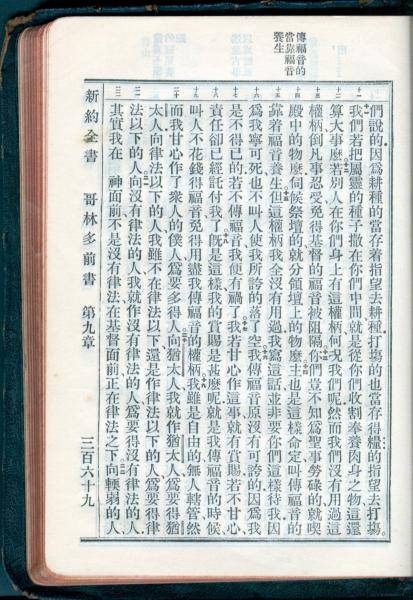 傳福音的
當靠福音
養生
們說的、因爲耕種的當存着指望去耕種、打塲的也當存得糧的指望去打塲。
我們若把屬靈的種子撒在你們中間、就是從你們收割奉養肉身之物、這還
算大事麼。若別人在你們身上有這權柄、何況我們呢。然而我們沒有用過這
權柄、倒凡事忍受、免得基督的福音被阻隔。你們豈不知爲聖事勞碌的、就喫
殿中的物麼。伺候祭壇的、就分領壇上的物麼。主也是這樣命定、叫傳福音的
靠着福音養生。但這權柄我全沒有用過。我寫這話、並非要你們這樣待我、因
爲我寧可死、也不叫人使我所誇的落了空。我傳福音原沒有可誇的、因爲我
是不得已的、若不傳福音、我便有禍了。我若甘心作這事、就有賞賜、若不甘心、
責任卻已經託付我了。旣是這樣、我的賞賜是甚麼呢、就是我傳福音的時候、
叫人不花錢得福音、免得用盡我傳福音的權柄。我雖是自由的、無人轄管、然
而我甘心作了衆人的僕人、爲要多得人。向猶太人、我就作猶太人、爲要得猶
太人、向律法以下的人、我雖不在律法以下、還是作律法以下的人、爲要得律
法以下的人。向沒有律法的人、我就作沒有律法的人、爲要得沒有律法的人。
其實我在 神面前、不是沒有律法、在基督面前、正在律法之下。向輭弱的人、
新約全書 哥林多前書 第九章 三百六十九